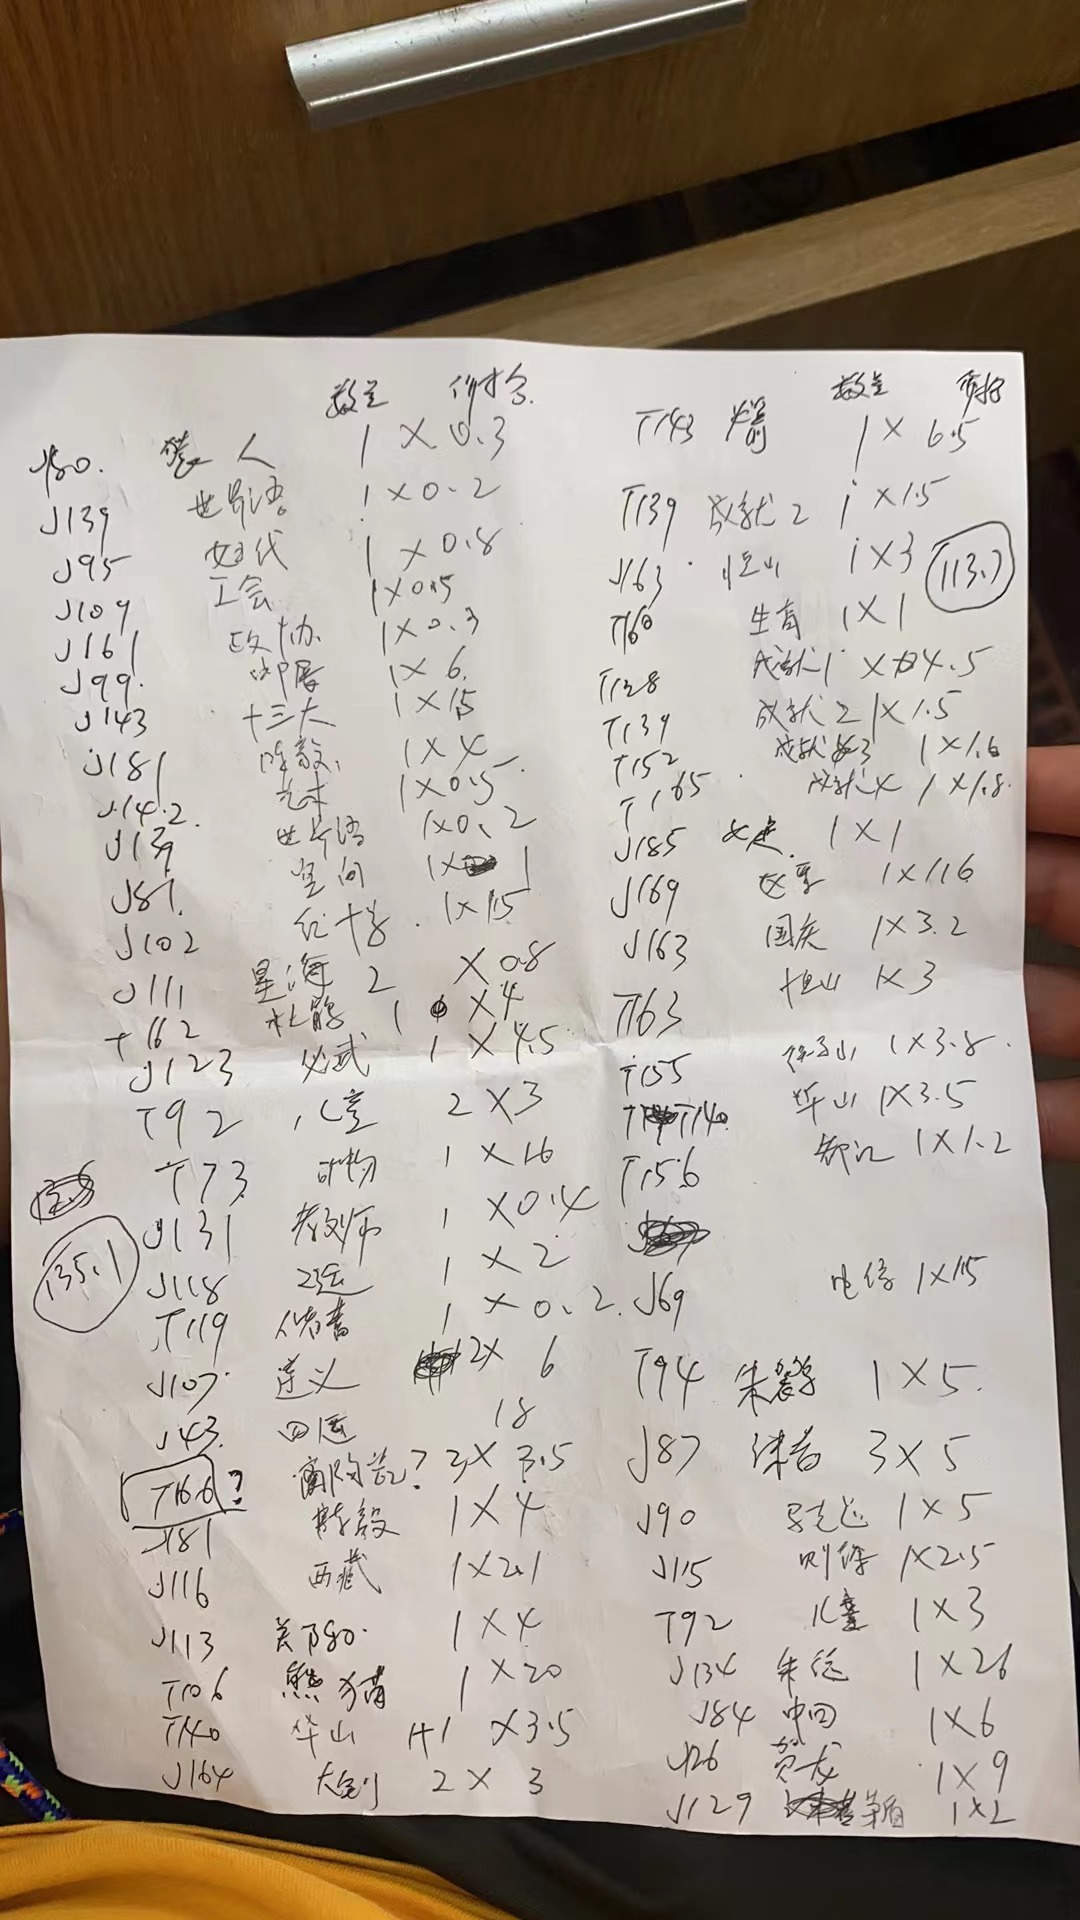 数量 价格
J80. 人 1 X 0.3
J139 世界语 1 X 0.2
J95 妇代 1 X 0.8
J109 工会 1 X 0.5
J161 政协 1 X 0.3
J99. 邮展 1 X 6
J143 十三大 1 X 15
J181 陈毅 1 X 4
J142. 艺术 1 X 0.5
J139 世界语 1 X 0.2
J87. 空间 1 X 1
J102 红十字 1 X 15
J111 星海 2 X 0.8
T162 杜鹃 1 X 4
J123 必武 1 X 4.5
T92 儿童 2 X 3
T73 1 X 16
J131 教师 1 X 0.4
J118 2运 1 X 2
T119 储蓄 1 X 0.2
J107 遵义 12 X 6
J43 四运 18
T166 ? 陶瓷? 3 X 3.5
J181 陈毅 1 X 4
J116 西藏 1 X 2.1
J113 1 X 4
T106 熊猫 1 X 20
T140 华山 1+1 X 3.5
J164 2 X 3
135.1
数量 价格
T143 火箭 1 X 6.5
T139 成就2 1 X 1.5
J163 恒山 1 X 3
113.7
T160 生育 1 X 1
T128 成就1 X 4.5
T139 成就2 1 X 1.5
T152 成就3 1 X 1.6
T165 成就4 1 X 1.8
J185 1 X 1
J169 1 X 1.6
J163 国庆 1 X 3.2
T163 恒山 1 X 3
T155 衡山 1 X 3.8
T140 华山 1 X 3.5
T156 都江 1 X 1.2
J69 电信 1 X 15
T94 朱鹮 1 X 5
J87 3 X 5
J90 1 X 5
J115 则徐 1 X 2.5
T92 儿童 1 X 3
J134 朱德 1 X 26
J84 中日 1 X 6
J126 贺龙 1 X 9
J129 茅盾 1 X 2